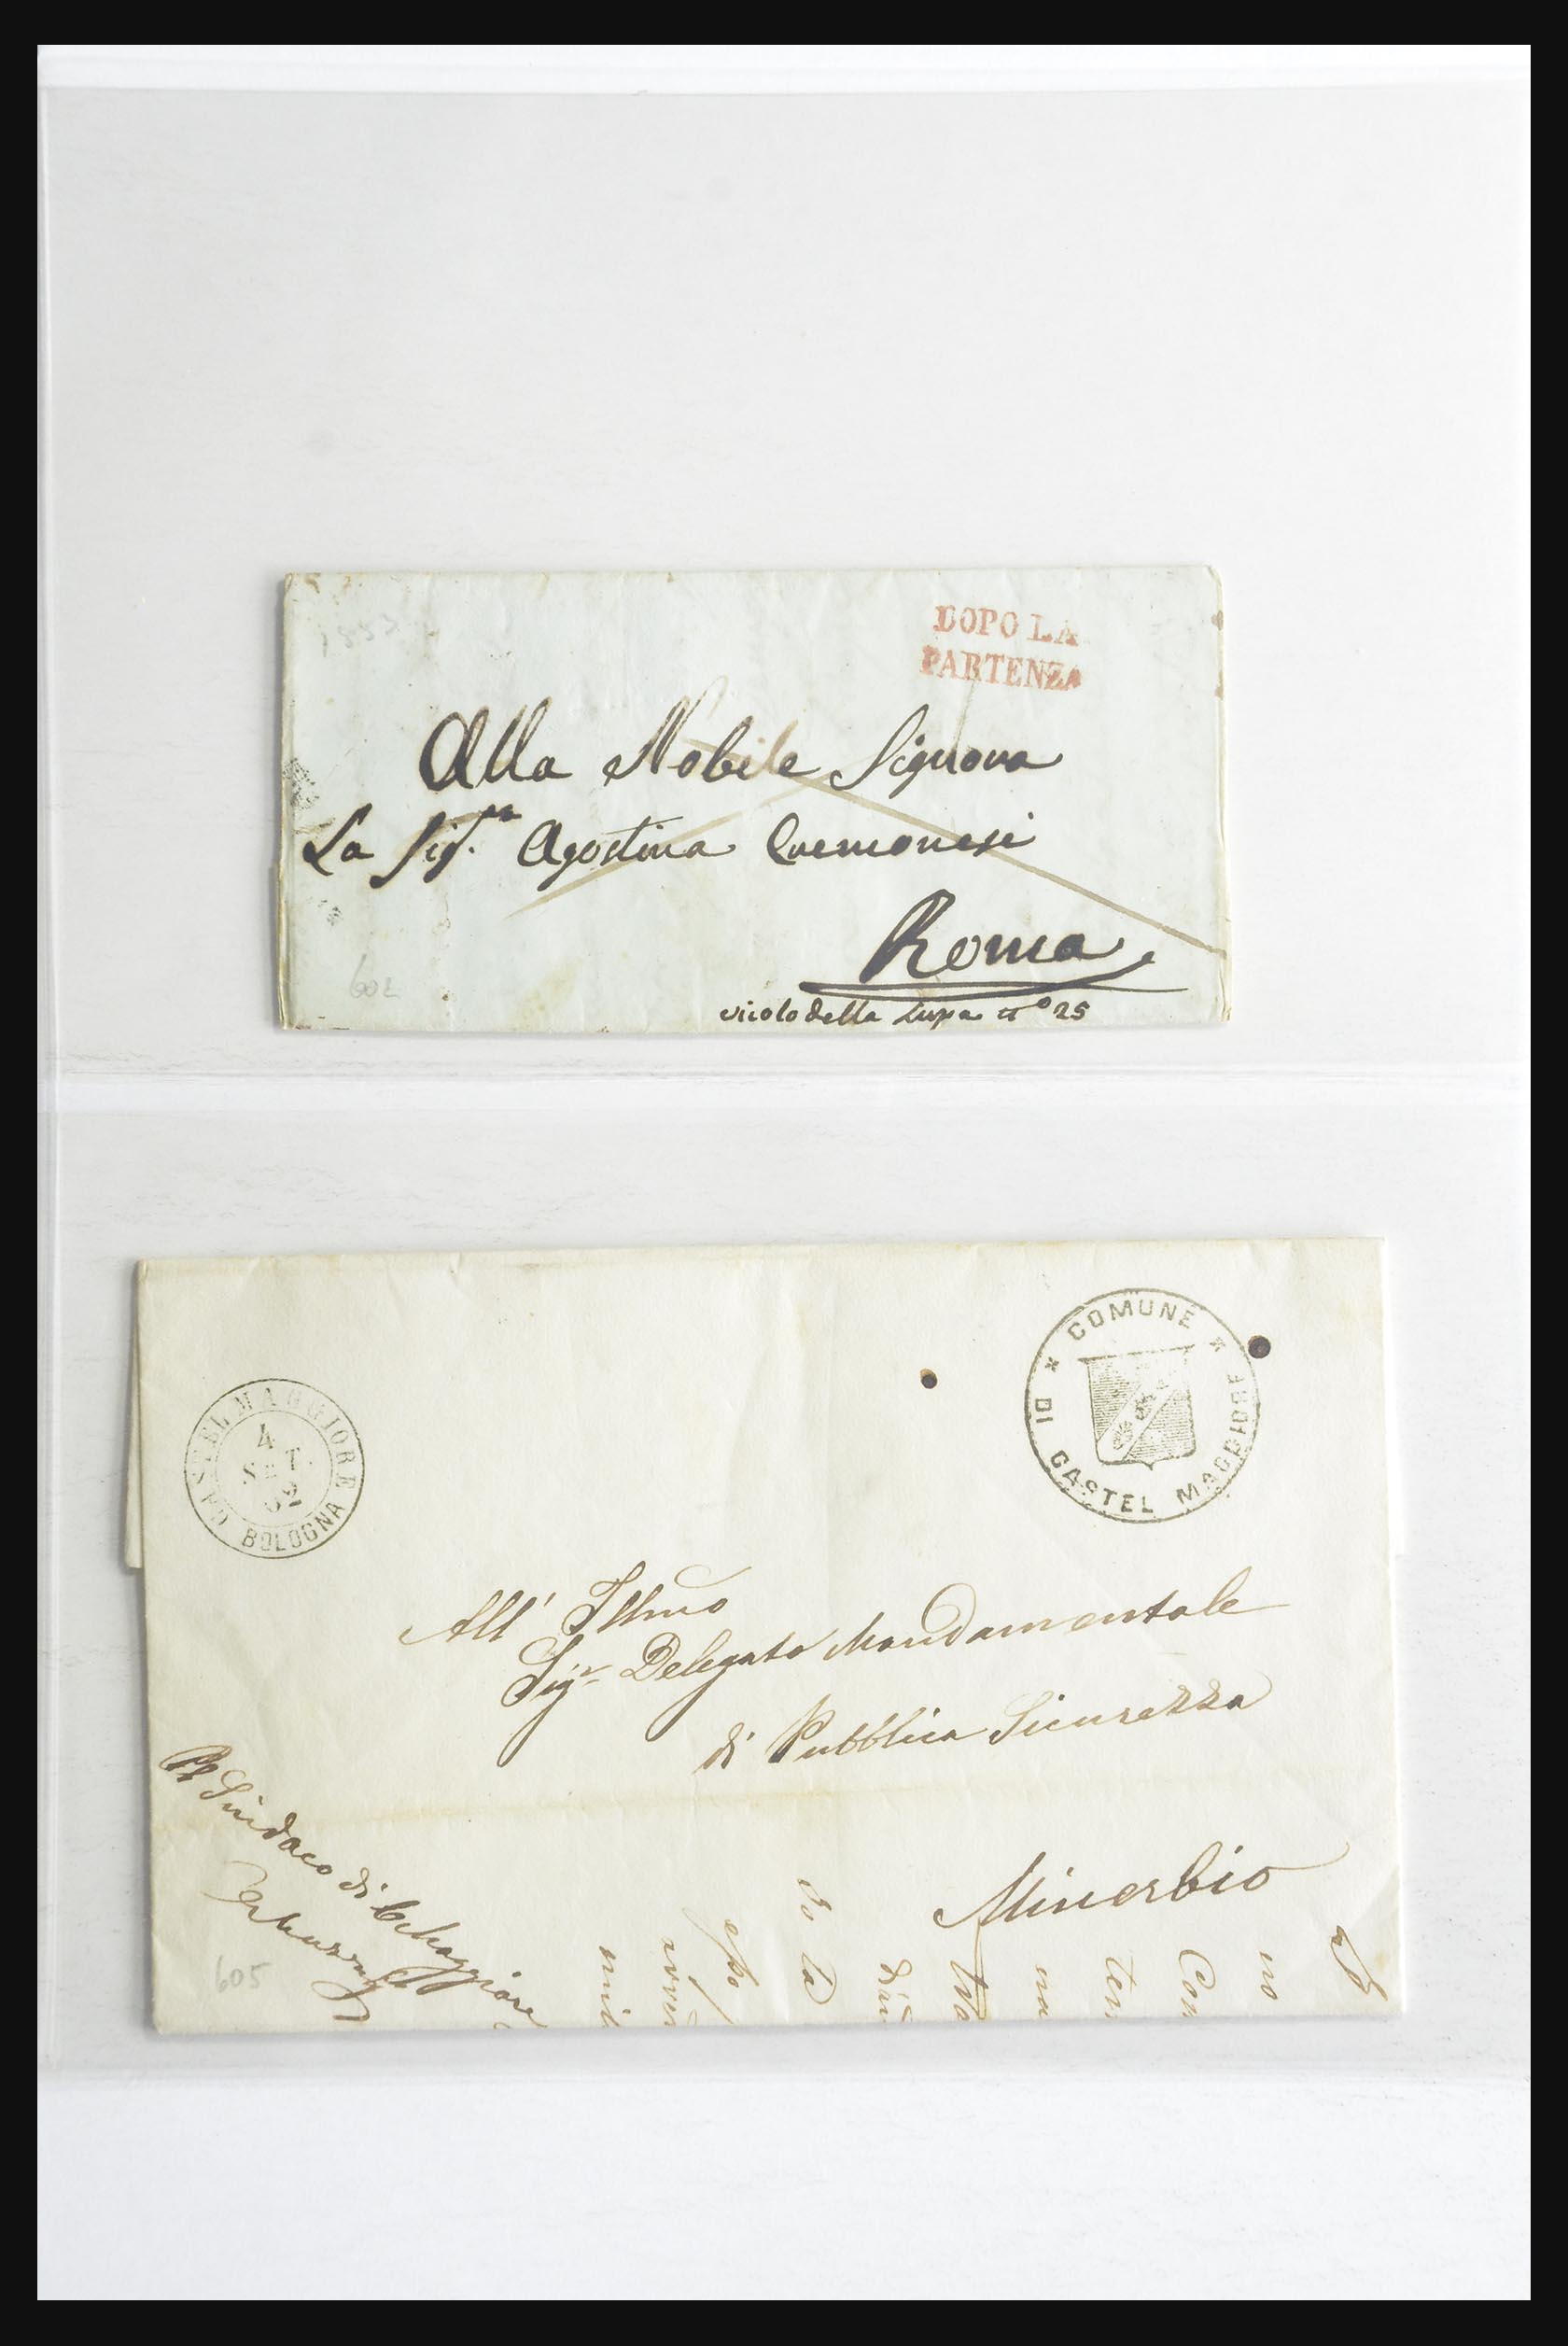 DOPO LA
PARTENZA
Alla Nobile Signora
La Sig.ra Agostina Cremonesi
Roma
vicolo della Lupa n° 25
602
COMUNE
DI CASTEL MAGGIORE
CASTEL MAGGIORE
4
SET.
BOLOGNA
All' Illmo
Sigr Delegato Mandamentale
di Pubblica Sicurezza
Minerbio
Il Sindaco di C. Maggiore
605
no
Con
tem
na
tra